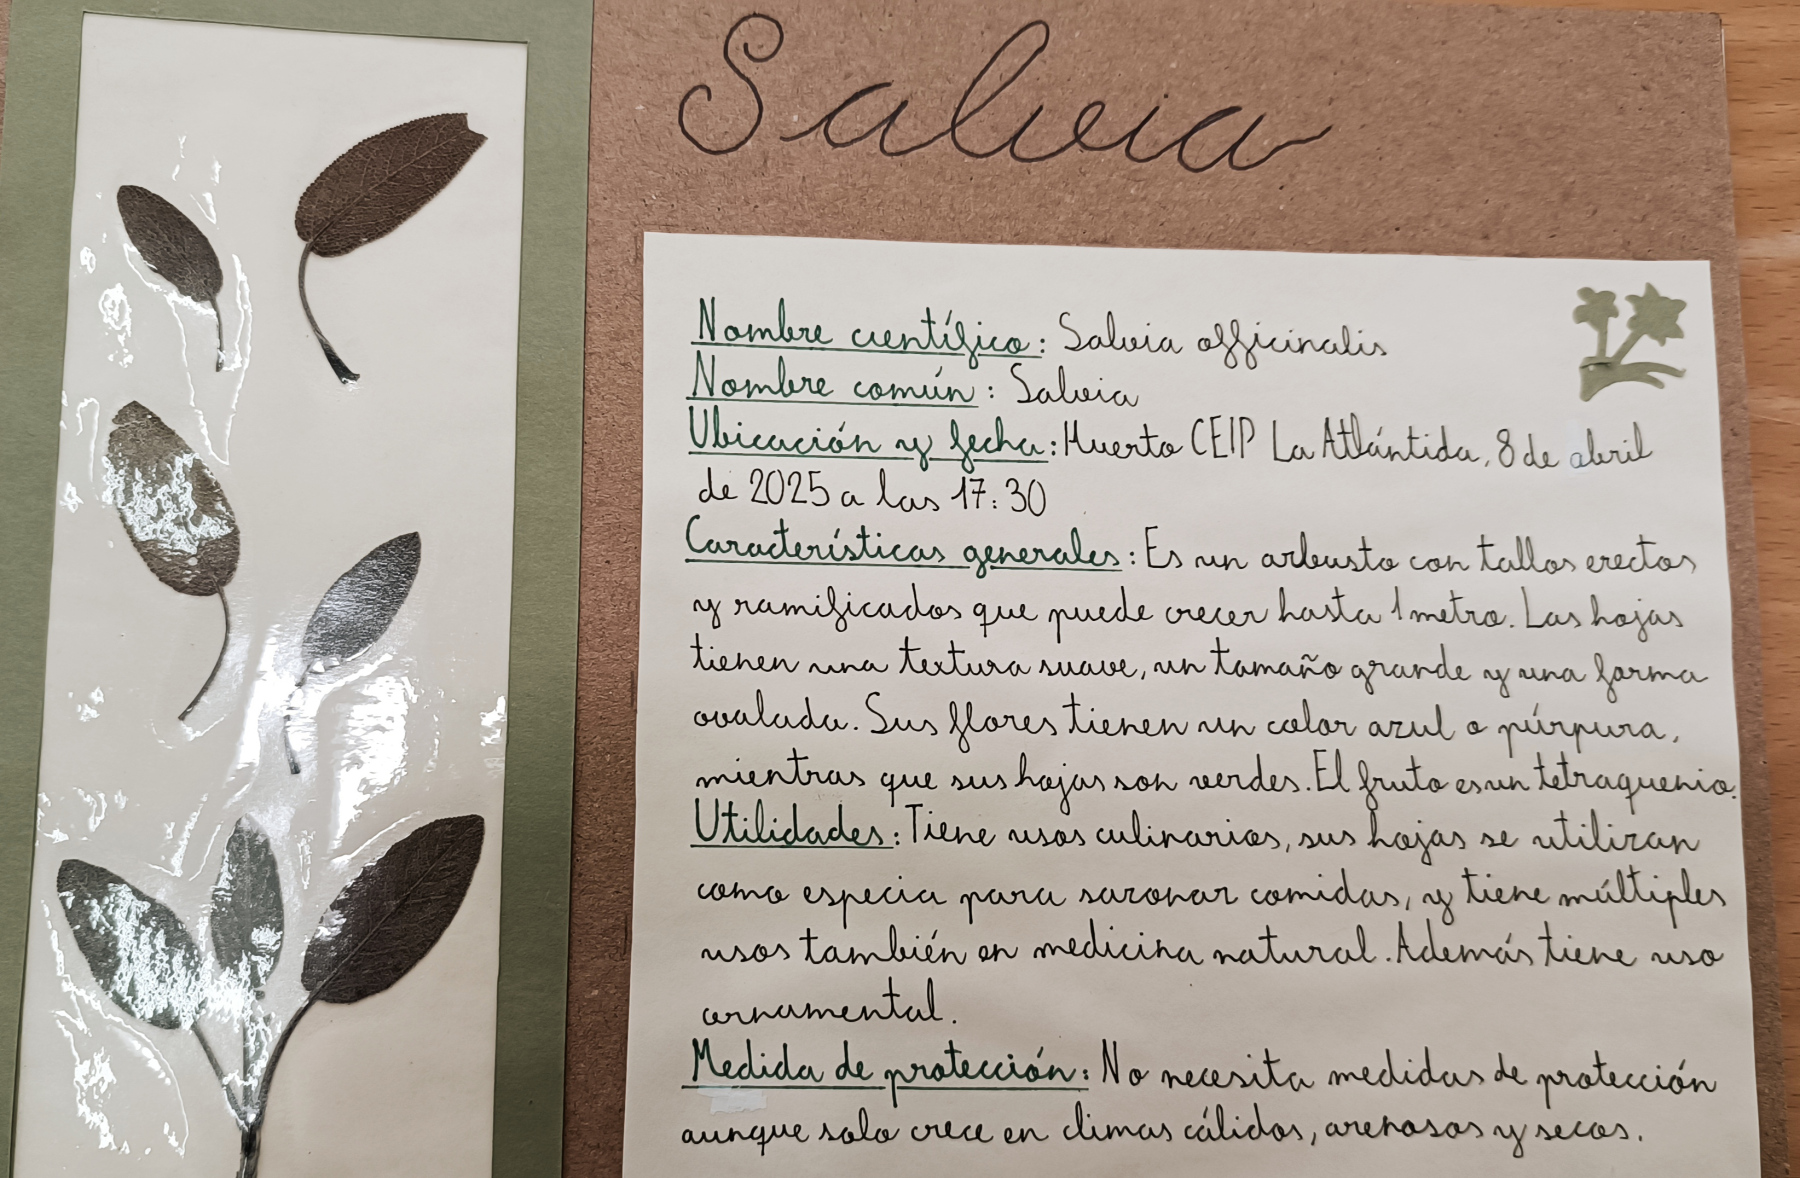 Salvia
Nombre científico: Salvia officinalis
Nombre común: Salvia
Ubicación y fecha: Huerto CEIP La Atlántida, 8 de abril
de 2025 a las 17:30
Características generales: Es un arbusto con tallos erectos
y ramificados que puede crecer hasta 1 metro. Las hojas
tienen una textura suave, un tamaño grande y una forma
ovalada. Sus flores tienen un color azul o púrpura,
mientras que sus hojas son verdes. El fruto es un tetraquenio.
Utilidades: Tiene usos culinarios, sus hojas se utilizan
como especia para sazonar comidas, y tiene múltiples
usos también en medicina natural. Además tiene uso
ornamental.
Medida de protección: No necesita medidas de protección
aunque solo crece en climas cálidos, arenosos y secos.